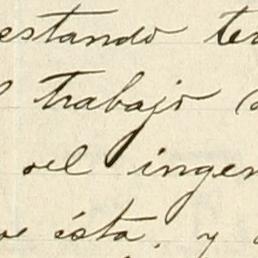 estando te
trabajo
el ingen
ésta, y